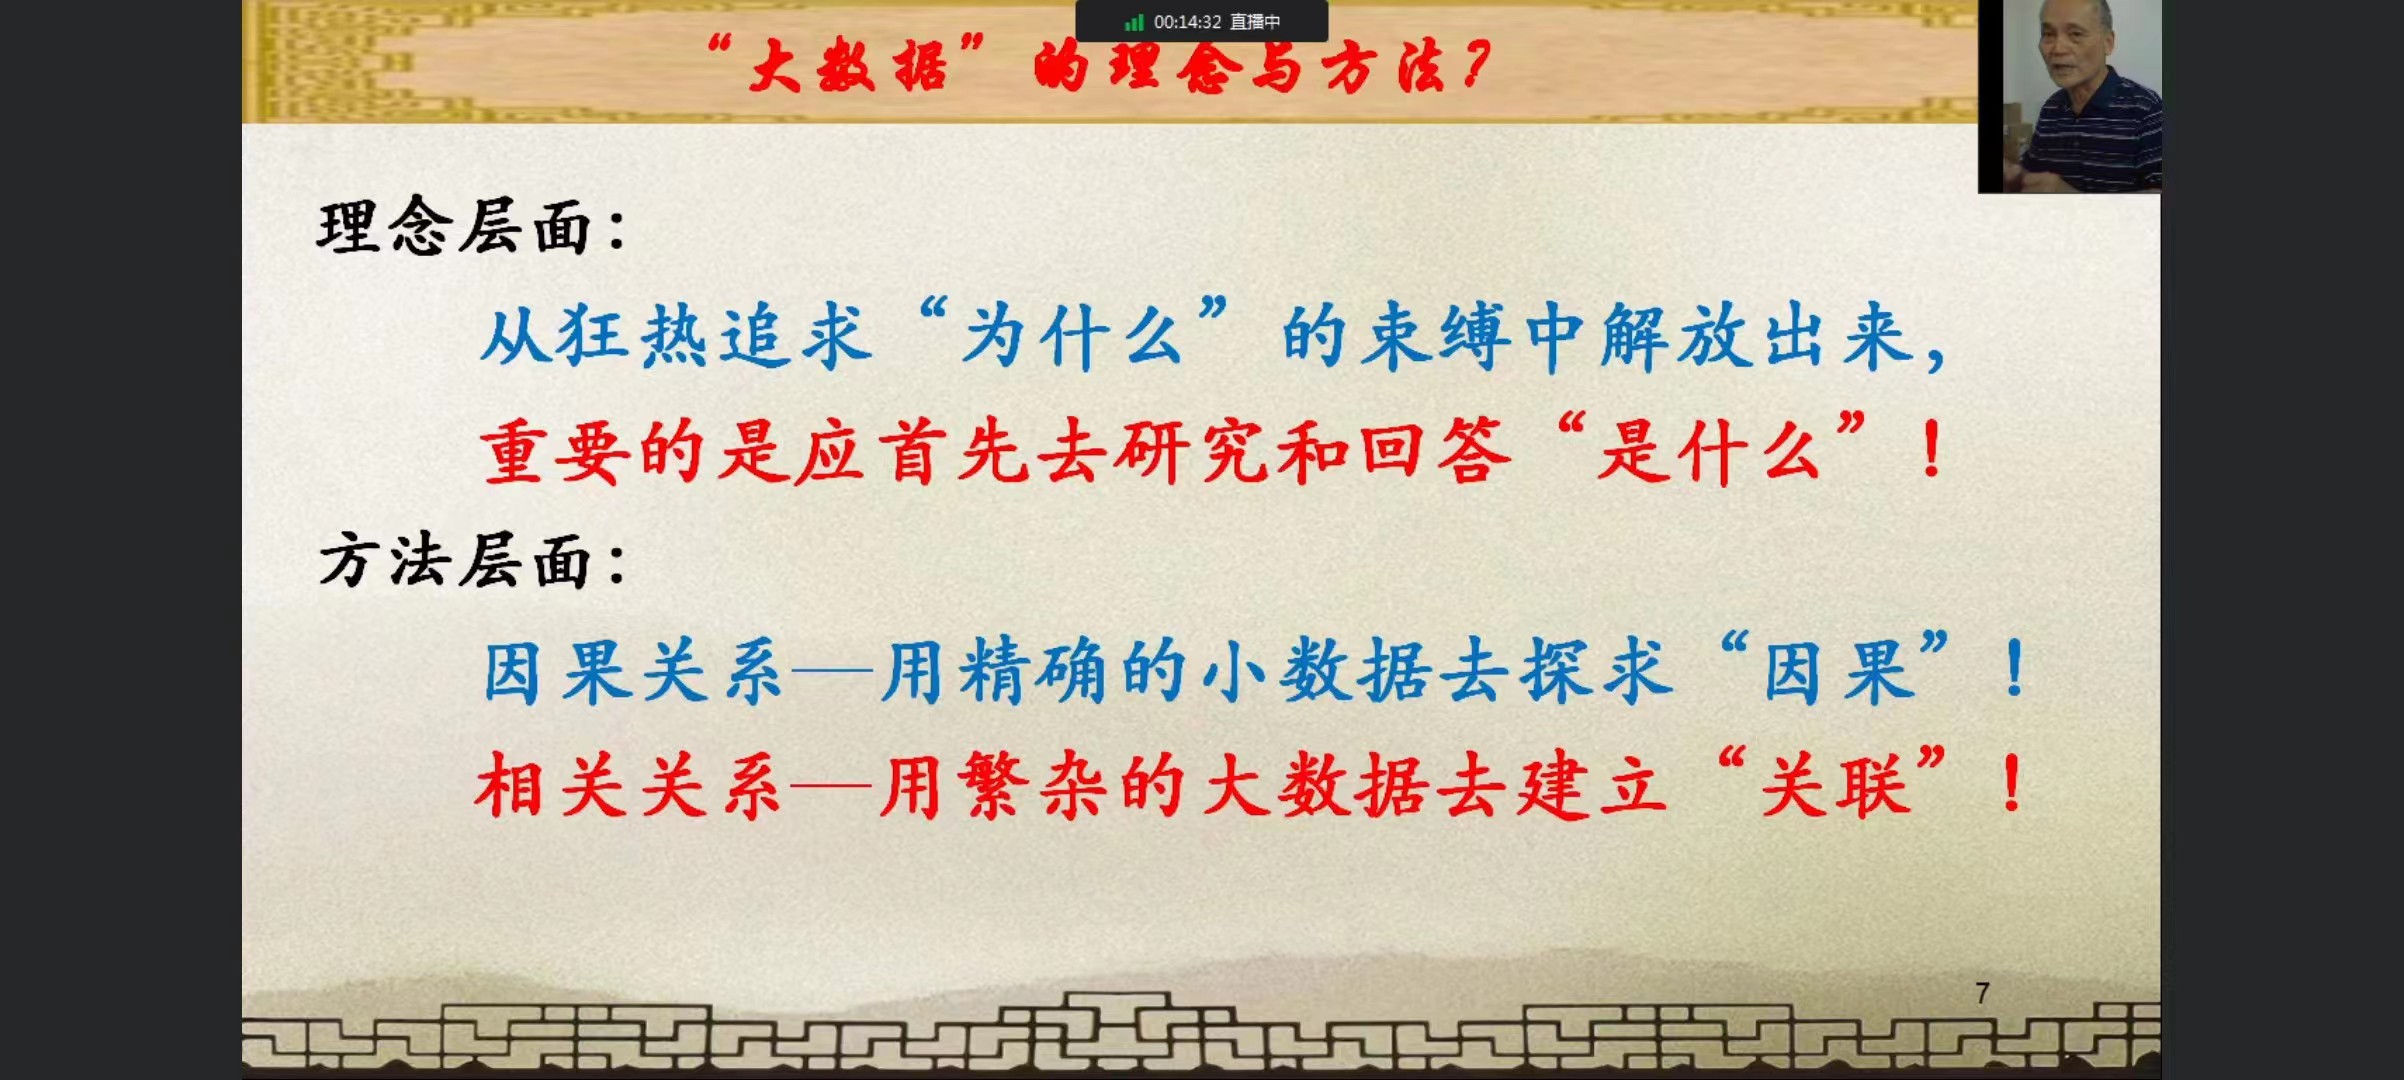 00:14:32 直播中
“大数据”的理念与方法？
理念层面：
从狂热追求“为什么”的束缚中解放出来，
重要的是应首先去研究和回答“是什么”！
方法层面：
因果关系—用精确的小数据去探求“因果”！
相关关系—用繁杂的大数据去建立“关联”！
7